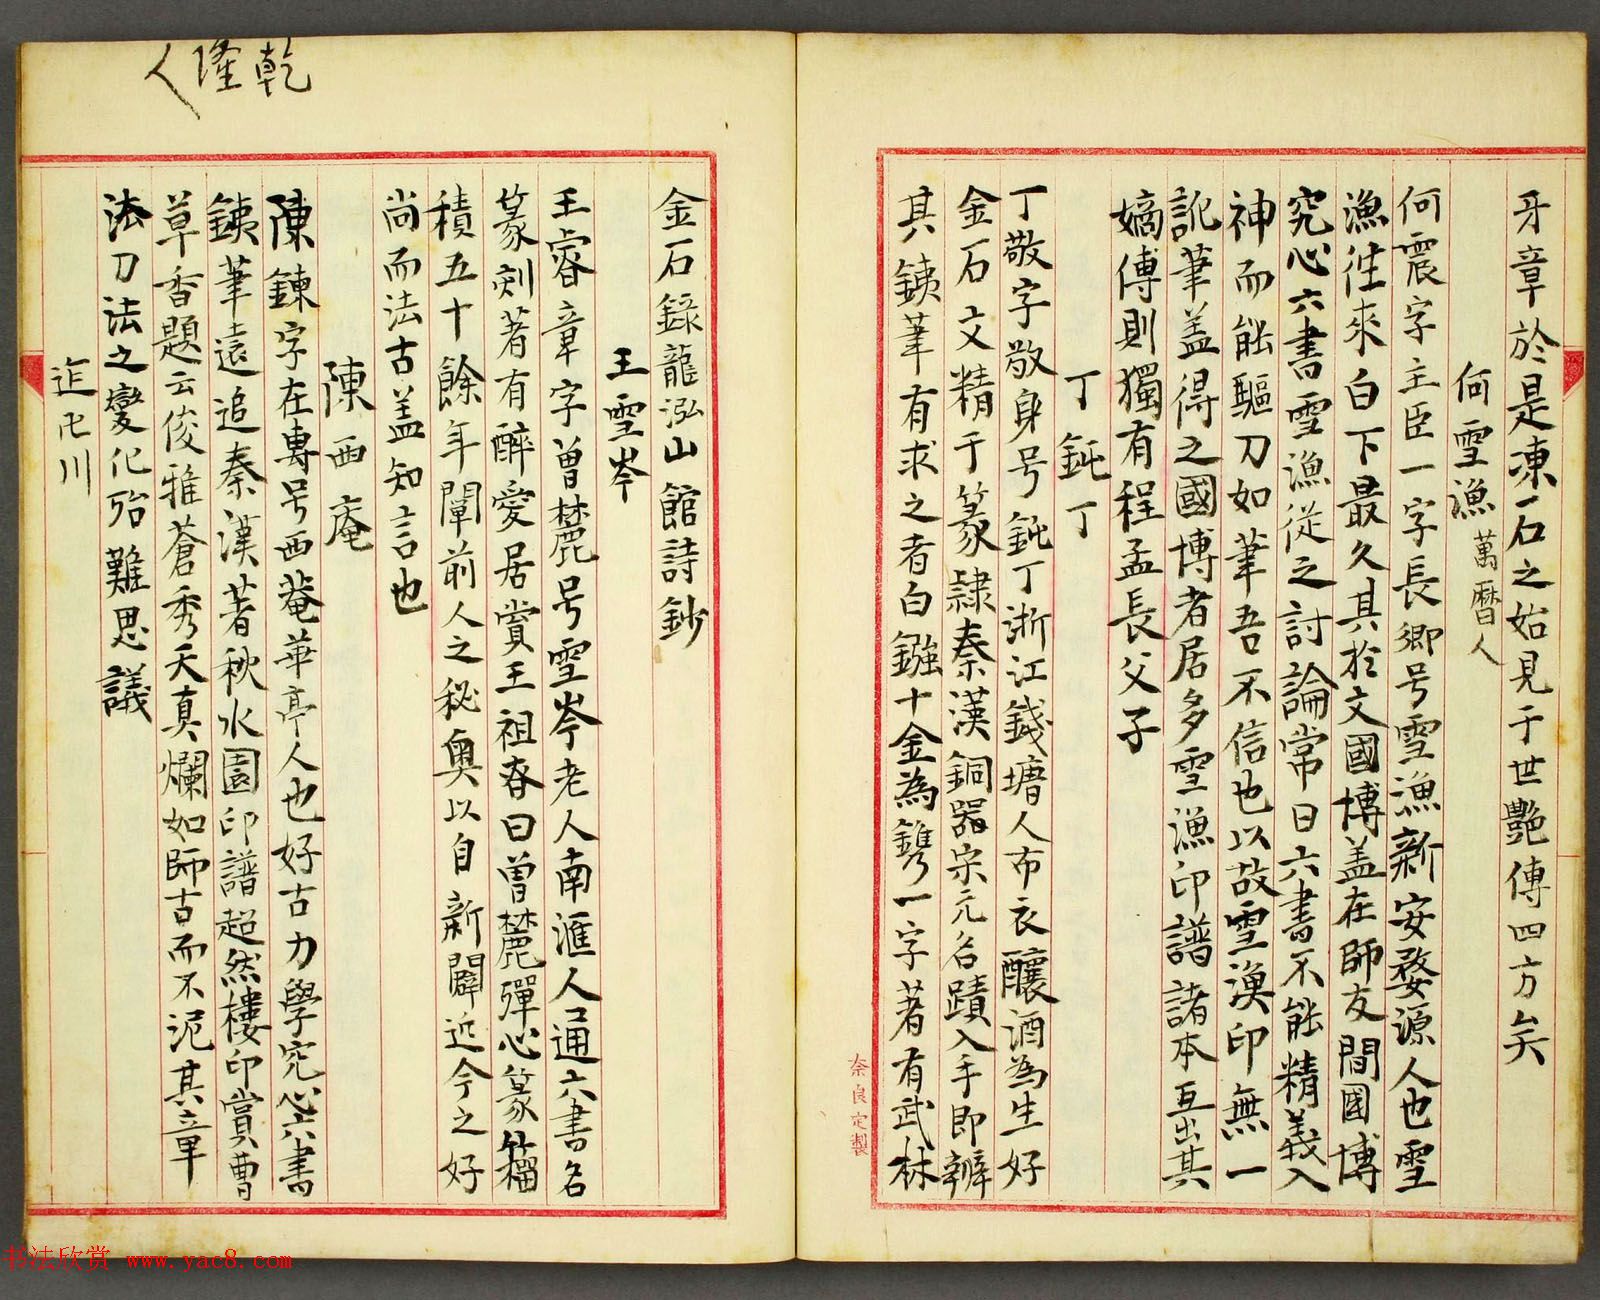 牙章於是凍石之始見于世艷傳四方矣
何雪漁 萬曆人
何震字主臣一字長卿号雪漁新安婺源人也雪
漁往來白下最久其於文國博盖在師友間國博
究心六書雪漁從之討論常日六書不能精義入
神而能驅刀如筆吾不信也以故雪漁印無一
訛筆盖得之國博者居多雪漁印譜諸本互出其
嫡傳則獨有程孟長父子
丁鈍丁
丁敬字敬身号鈍丁浙江錢塘人布衣釀酒為生好
金石文精于篆隷秦漢銅器宋元名蹟入手即辨
其銕筆有求之者白鏹十金為鐫一字著有武林
奈良定製
金石録龍泓山館詩鈔
王雪岑
王睿章字曾麓号雪岑老人南滙人通六書名
篆刻著有醉愛居賞王祖眘曰曾麓殫心篆籀
積五十餘年闡前人之秘奥以自新闢近今之好
尚而法古盖知言也
陳西庵
陳鍊字在專号西菴華亭人也好古力學究心六書
銕筆遠追秦漢著秋水園印譜超然樓印賞曹
草香題云俊雅蒼秀天真爛如師古而不泥其章
法刀法之變化殆難思議
乾隆人
书法欣赏 www.yac8.com